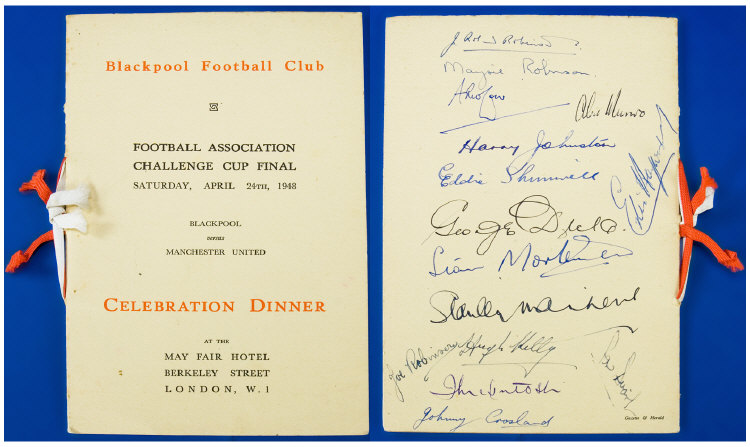 Blackpool Football Club
FOOTBALL ASSOCIATION
CHALLENGE CUP FINAL
SATURDAY, APRIL 24TH, 1948
BLACKPOOL
versus
MANCHESTER UNITED
CELEBRATION DINNER
AT THE
MAY FAIR HOTEL
BERKELEY STREET
LONDON, W.1
J. Robinson.
Marjorie Robinson.
Alex Munro
Harry Johnston
Eddie Shimwell
George Dick.
Stan Mortensen
Stanley Matthews
Joe Robinson
Hugh Kelly
McIntosh
Johnny Crosland
Gazette & Herald